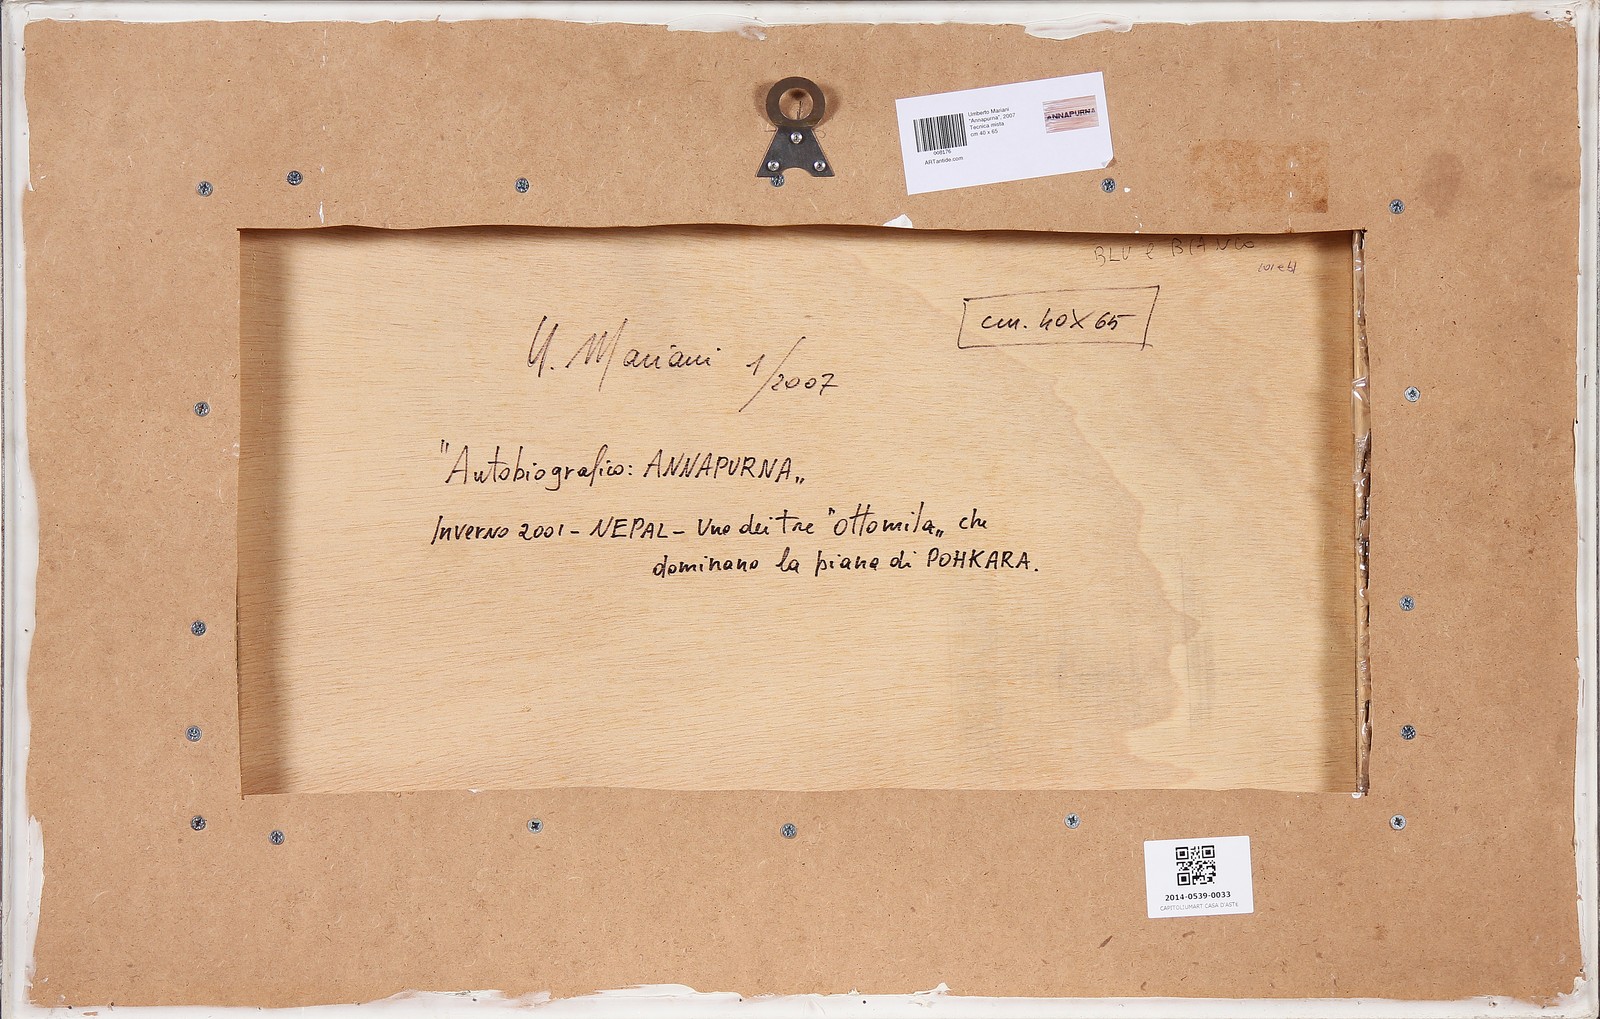 Umberto Mariani
"Annapurna", 2007
Tecnica mista
cm 40 x 65
008176
ARTantide.com
ANNAPURNA
BLU e BIANCO
cm. 40X65
U. Mariani 1/2007
"Autobiografico: ANNAPURNA„
Inverno 2001 - NEPAL - Uno dei tre "Ottomila„ che
dominano la piana di POHKARA.
2014-0539-0033
CAPITOLIUMART CASA D'ASTE